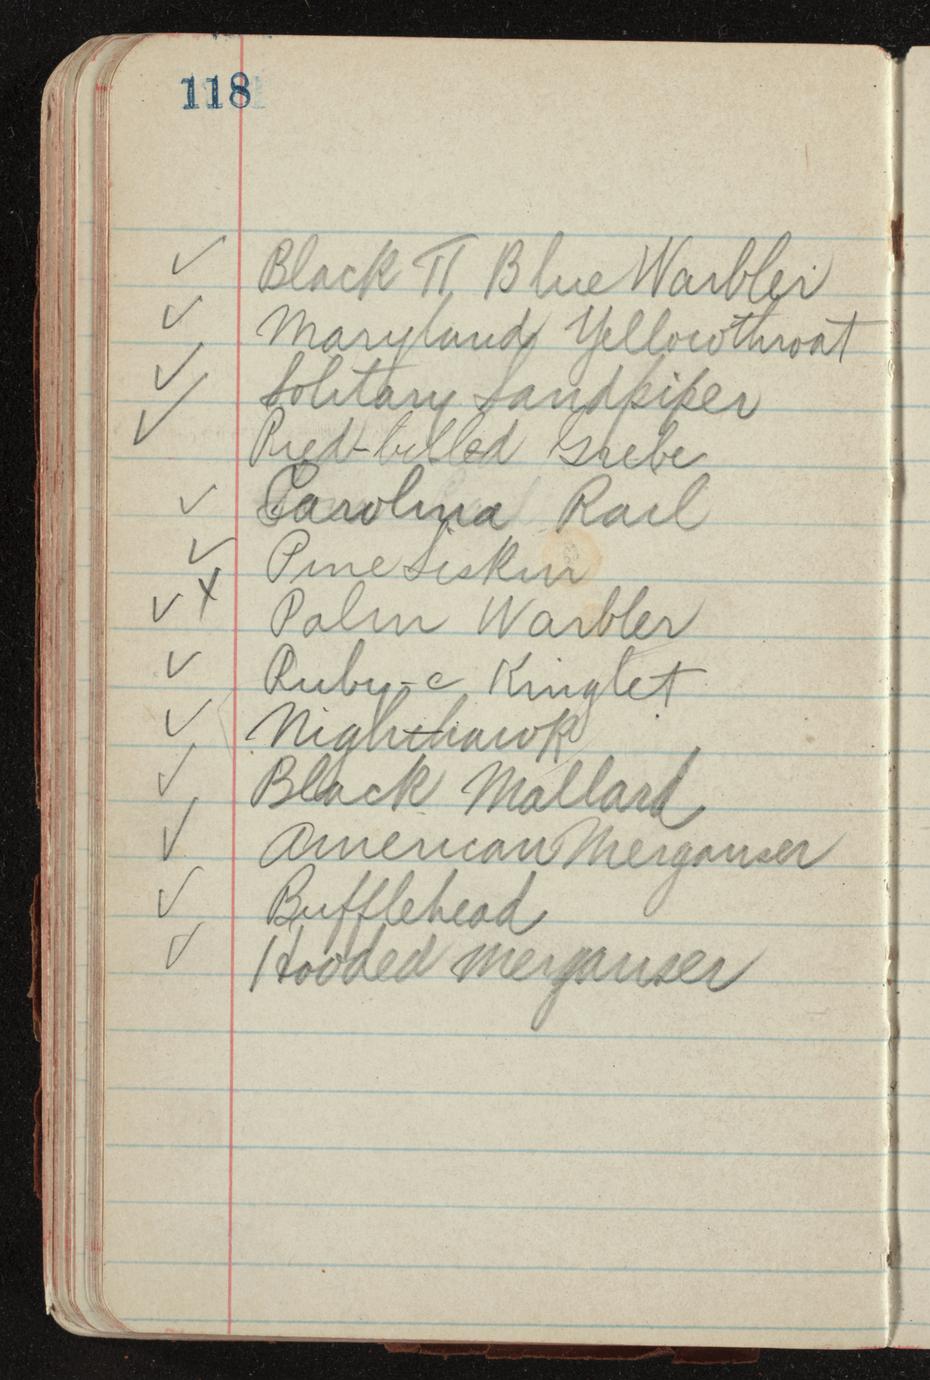 118
✓ Black Tl Blue Warbler
✓ Maryland Yellowthroat
✓ Solitary Sandpiper
✓ Pied-billed Grebe
✓ Carolina Rail
✓ Pine Siskin
✓ X Palm Warbler
✓ Ruby-c Kinglet
✓ Nighthawk
✓ Black Mallard
✓ American Merganser
✓ Bufflehead
✓ Hooded Merganser